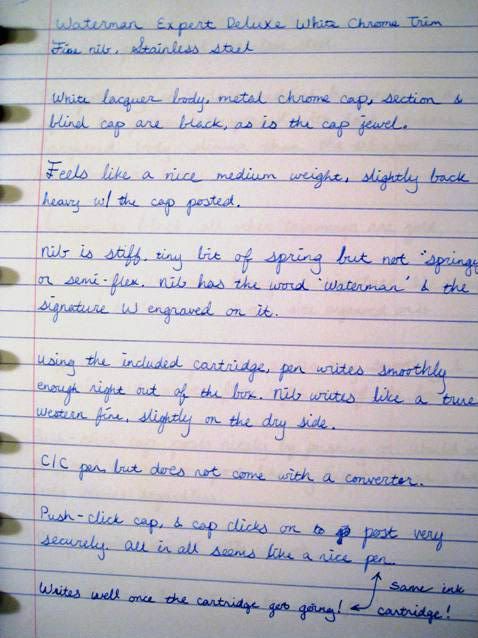 Waterman Expert Deluxe White Chrome Trim
Fine nib, Stainless steel
White lacquer body, metal chrome cap, section &
blind cap are black, as is the cap jewel.
Feels like a nice medium weight, slightly back
heavy w/ the cap posted.
Nib is stiff. tiny bit of spring but not "springy
or semi-flex. Nib has the word 'Waterman' & the
signature W engraved on it.
Using the included cartridge, pen writes smoothly
enough right out of the box. Nib writes like a true
western fine, slightly on the dry side.
C/C pen but does not come with a converter.
Push-click cap, & cap clicks on to post very
securely. All in all seems like a nice pen.
Writes well once the cartridge gets going!
Same ink
cartridge!